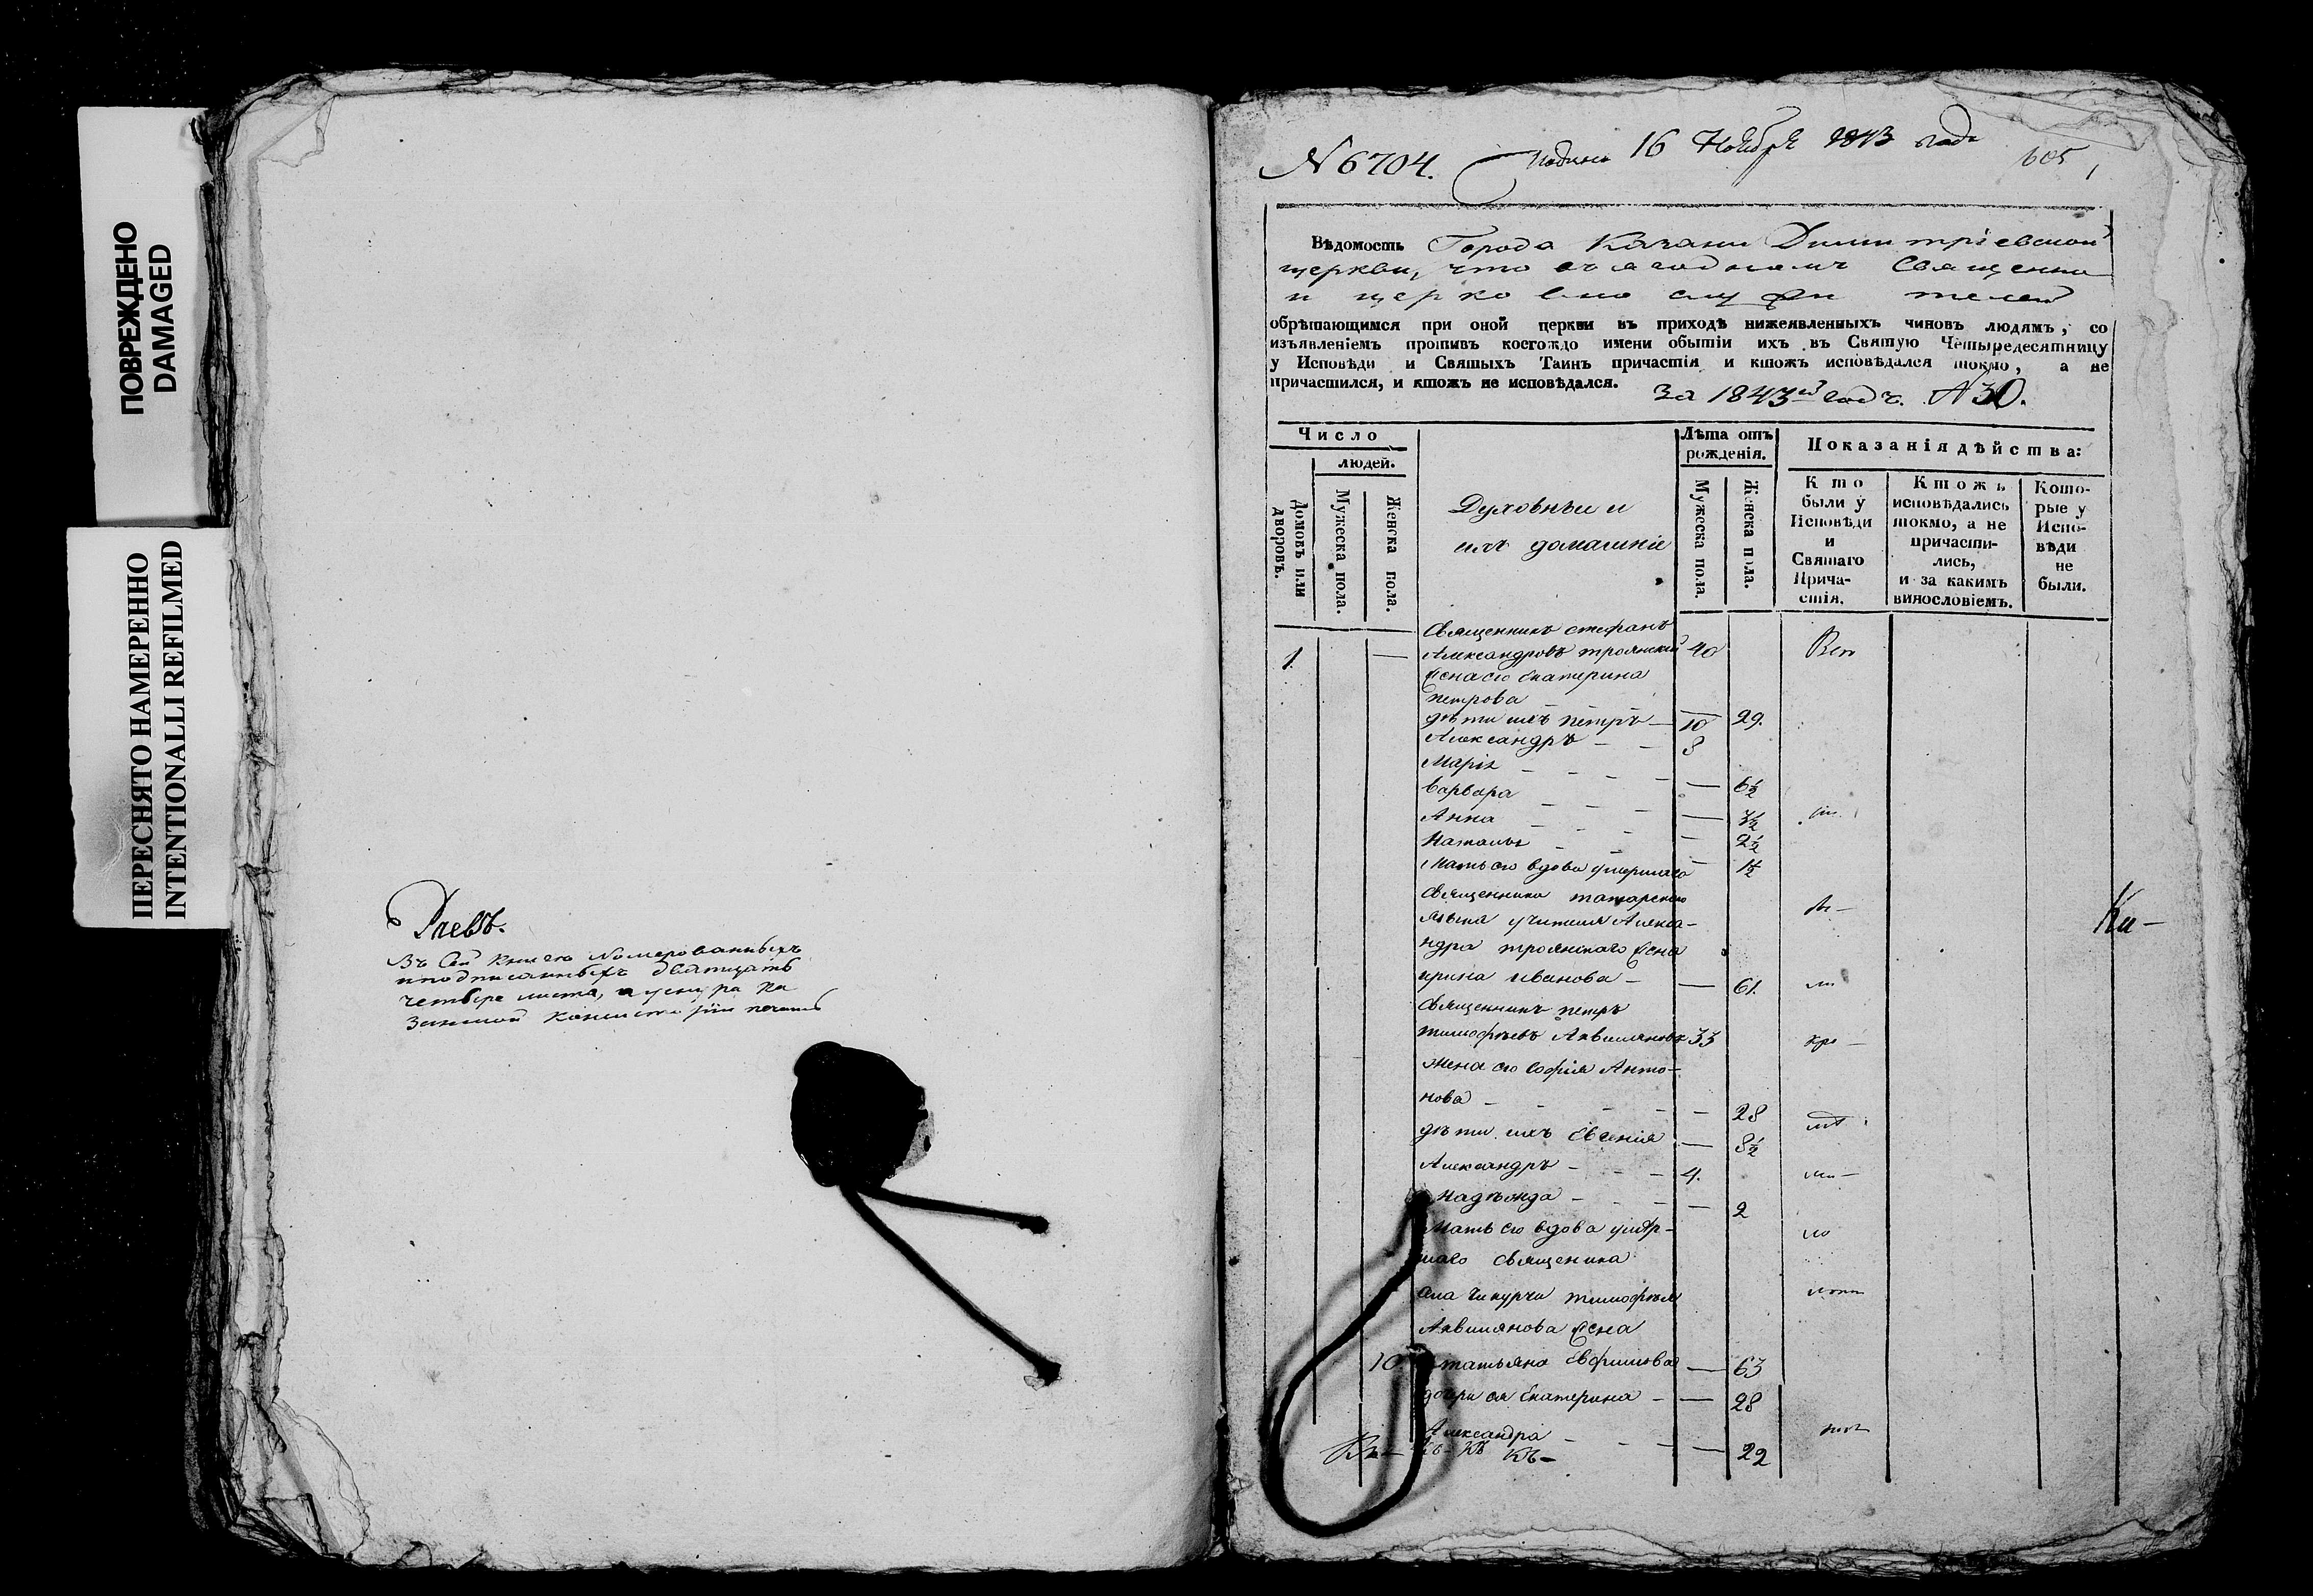 ПОВРЕЖДЕНО
DAMAGED
ПЕРЕСНЯТО НАМЕРЕННО
INTENTIONALLI REFILMED
Въ сей книгѣ номерованныхъ
и подписанныхъ двадцать
четыре листа,
печать
N 6704. Подано 16 Ноября 1843 года
605
1
Вѣдомость Города Казани Димитріевской
церкви, что въ Ягодномъ Священно
и церковно служителей
обрѣтающимся при оной церкви въ приходѣ нижеявленныхъ чиновъ людямъ, со
изъявленіемъ противъ коегождо имени обытіи ихъ въ Святую Четыредесятницу
у Исповѣди и Святыхъ Таинъ причастія и ктожъ исповѣдался токмо, а не
причастился, и ктожъ не исповѣдался.
За 1843й годъ. N 30.
Число
людей.
Домовъ или дворовъ.
Мужеска пола.
Женска пола.
Духовныи и
ихъ домашніе
Лѣта отъ
рожденія.
Мужеска пола.
Женска пола.
Показанія дѣйства:
Кто
были у
Исповѣди
и
Святаго
Прича-
стія.
Ктожъ
исповѣдались
токмо, а не
причасти-
лись,
и за какимъ
винословіемъ.
Кото-
рые у
Испо-
вѣди
не
были.
Священникъ Стефанъ
1. Александровъ Троянскій 40
Жена его Екатерина
Петрова 29.
дѣти ихъ Петръ 10
Александръ 8
Марія 6½
Варвара 3½
Анна 2½
Наталья 1½
Мать его вдова умершаго
Священника татарскаго
языка учителя Алекса-
ндра Троянскаго Жена
Ирина Иванова 61.
Священникъ Петръ
Тимофѣевъ Аквиляновъ 33
Жена его Софія Анто-
нова 28
дѣти ихъ Евгенія 8½
Александръ 4.
Надѣжда 2
Мать его вдова умер-
шаго Священика
Тимофѣя
Аквилянова Жена
10. Татьяна Ефимова 63
дочри ея Екатерина 28
Александра 22